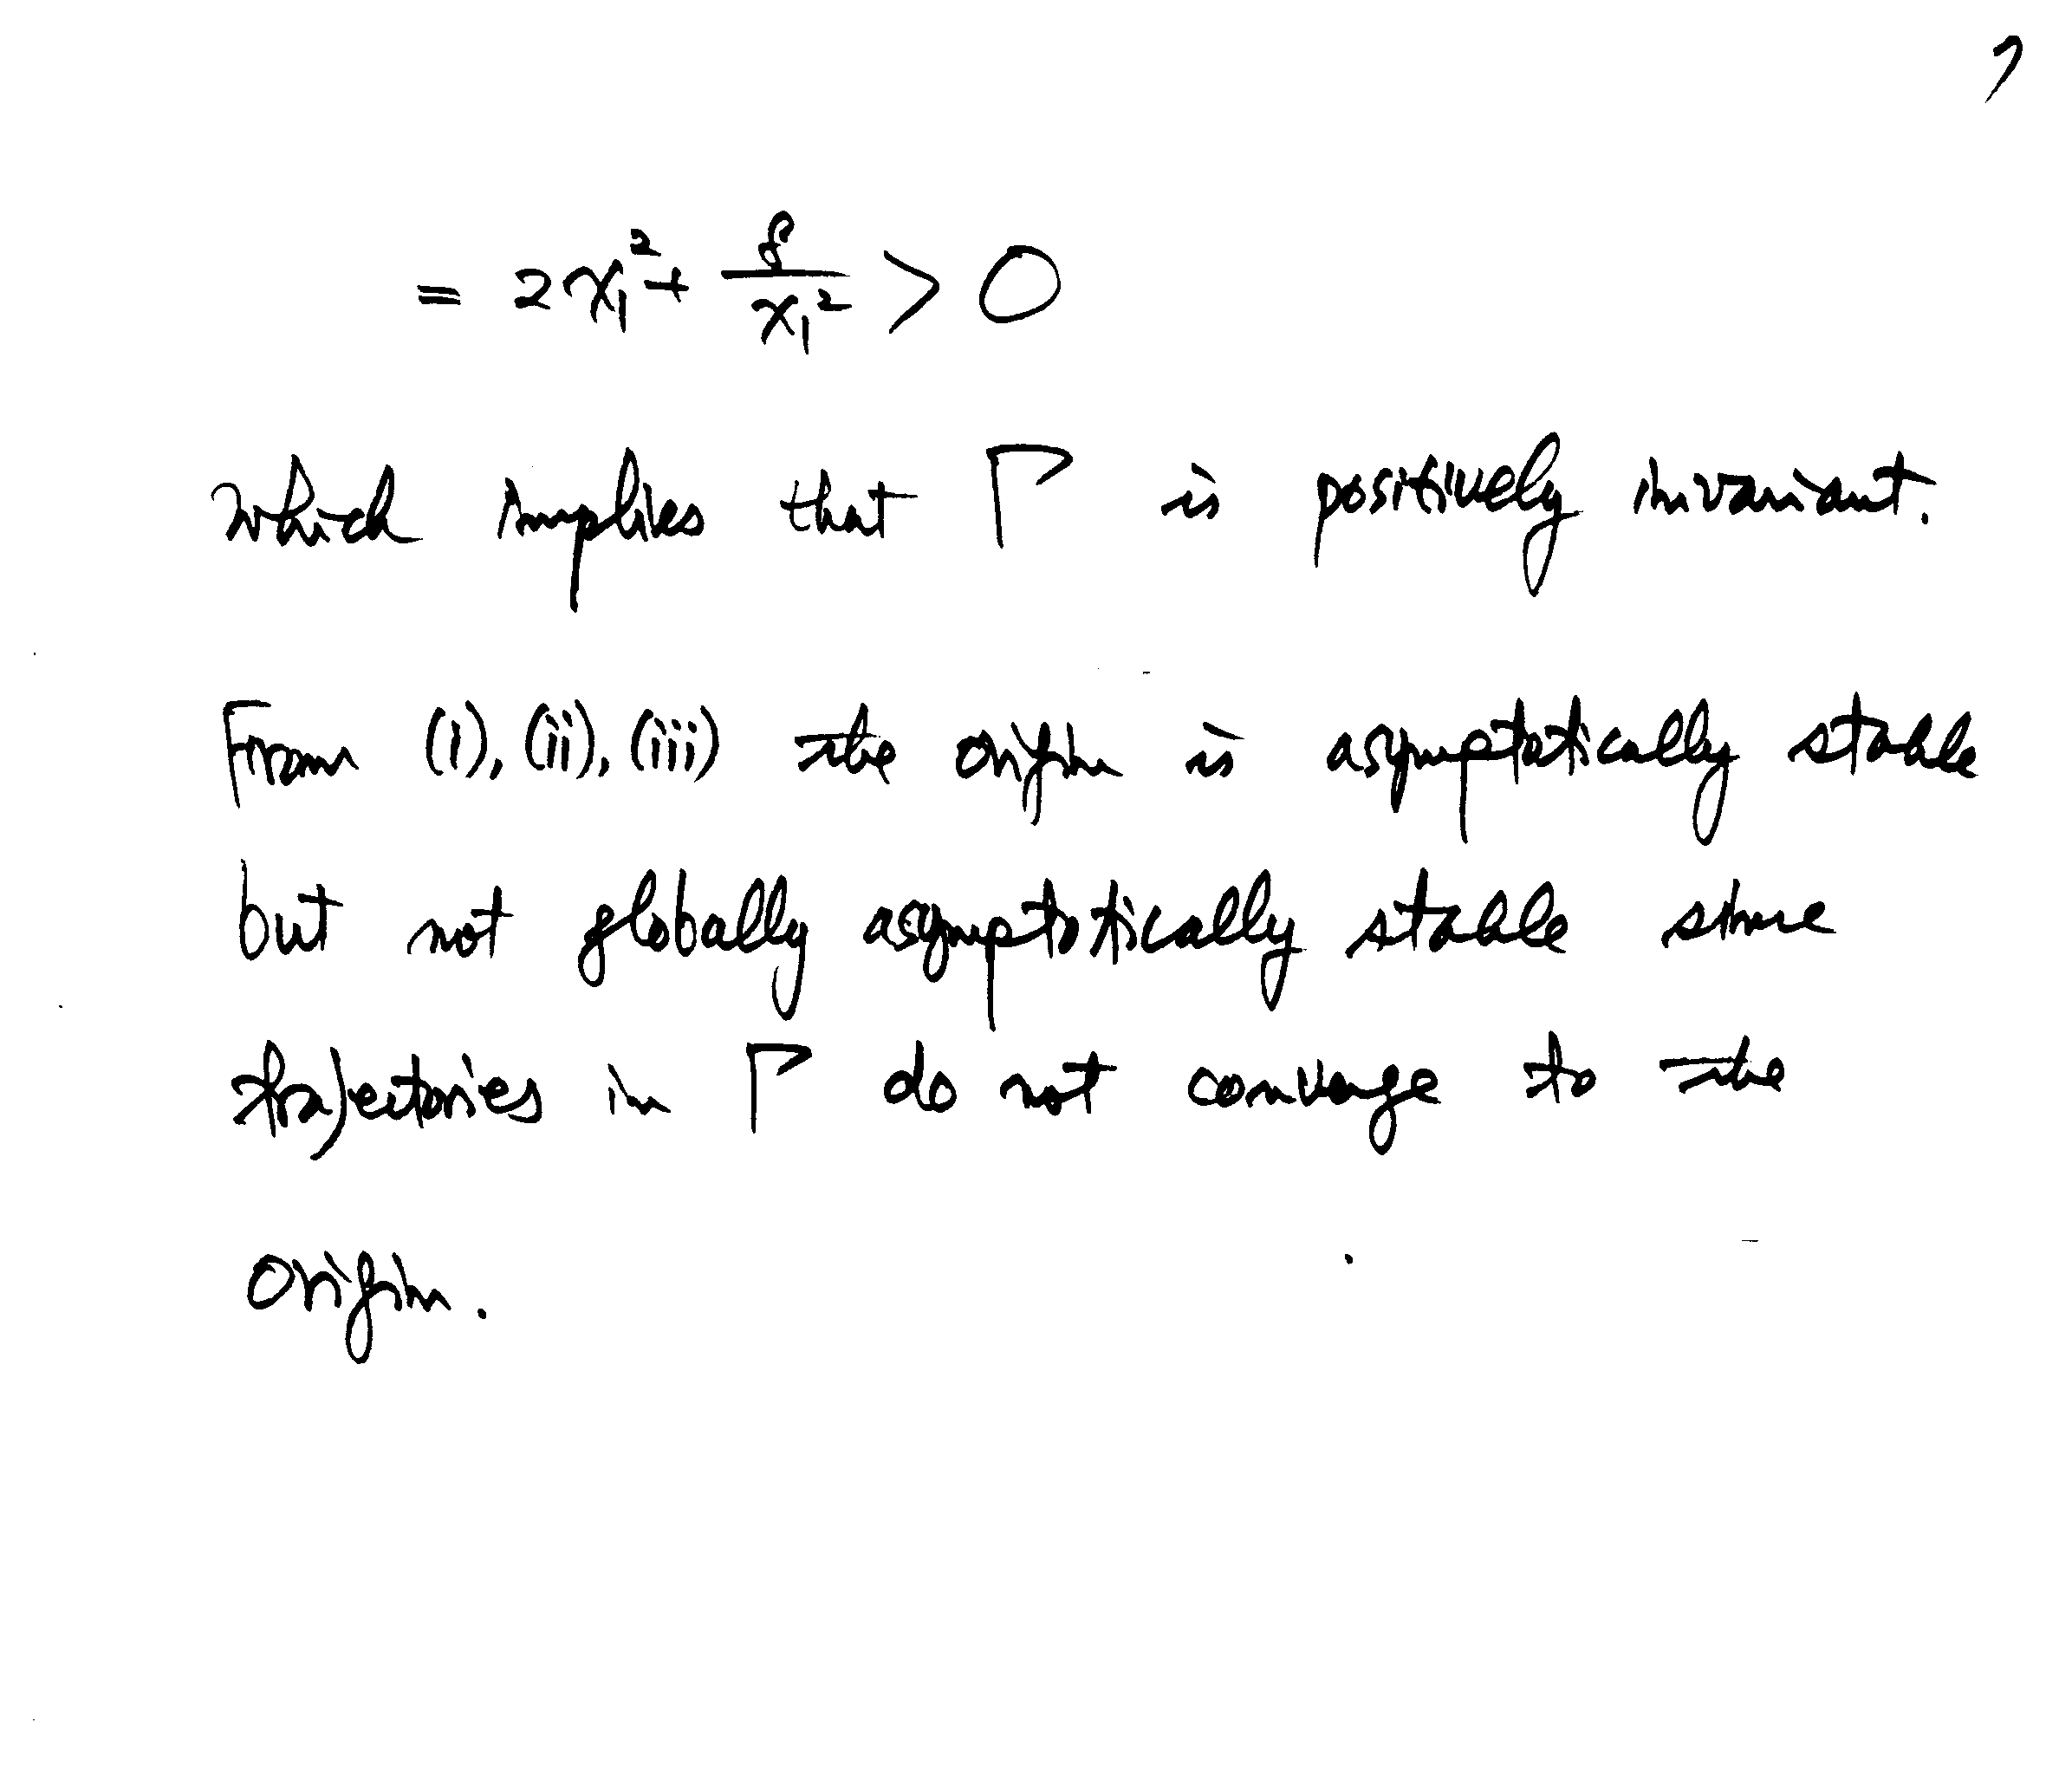 7
= 2x₁² + 8/x₁² > 0
which implies that Γ is positively invariant.
From (i), (ii), (iii) the origin is asymptotically stable
but not globally asymptotically stable since
trajectories in Γ do not converge to the
origin.